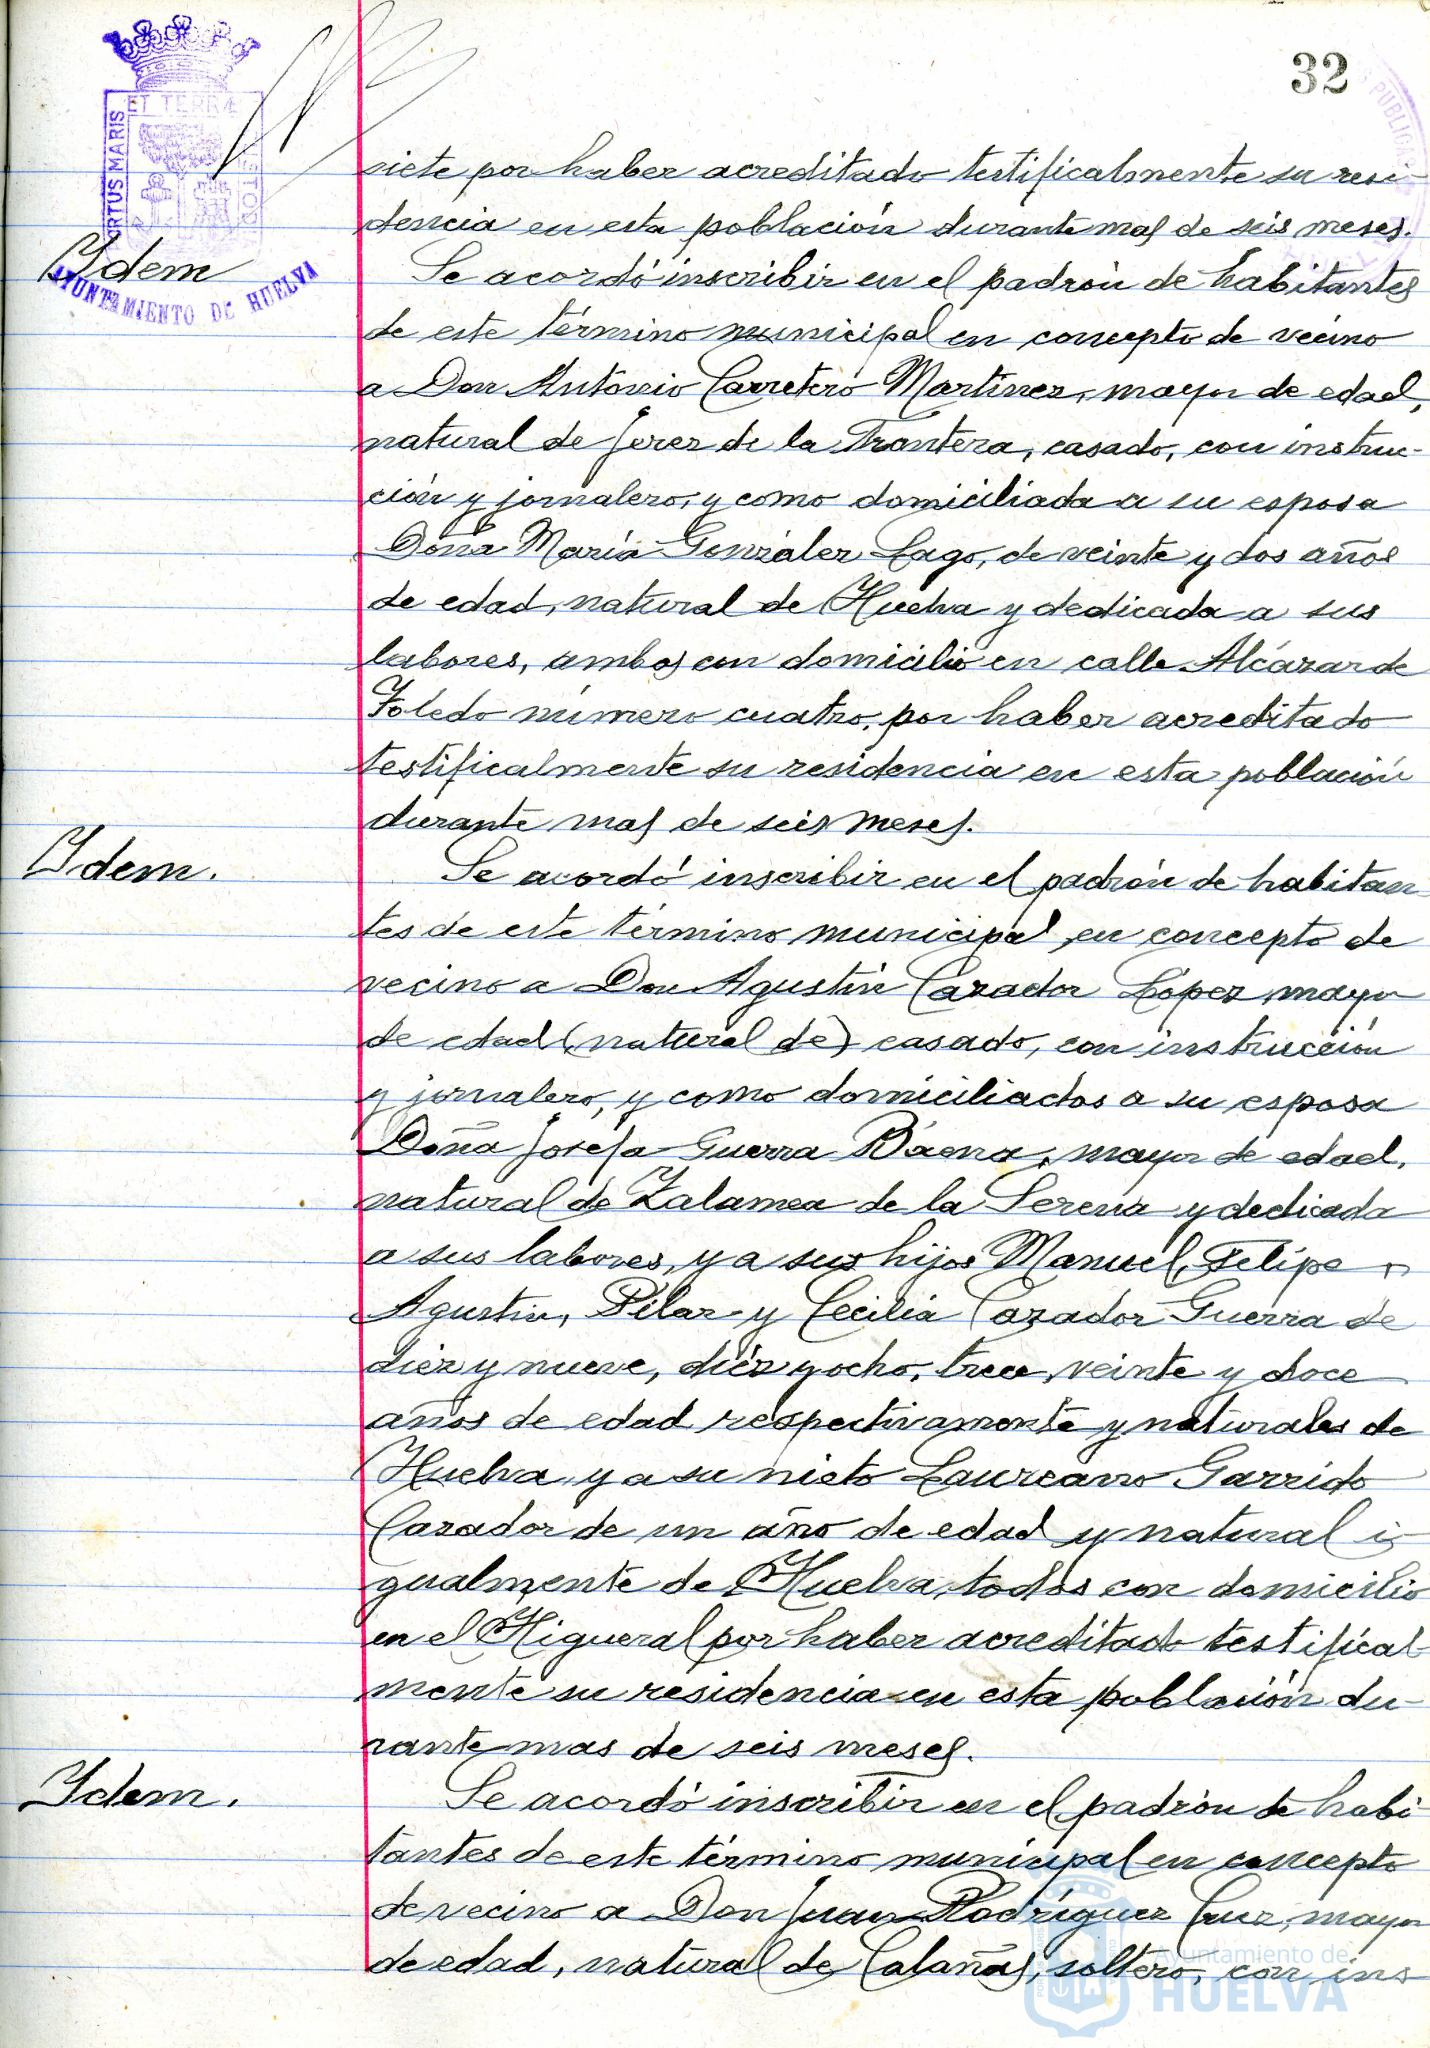 32
ET TERRÆ
PORTUS MARIS
CUSTO
AYUNTAMIENTO DE HUELVA
siete por haber acreditado testificalmente su resi-
dencia en esta población durante mas de seis meses.
Ydem
Se acordó inscribir en el padrón de habitantes
de este término municipal en concepto de vecino
a Don Antonio Carretero Martínez, mayor de edad,
natural de Jerez de la Frontera, casado, con instruc-
ción y jornalero, y como domiciliada a su esposa
Doña María González Lago, de veinte y dos años
de edad, natural de Huelva y dedicada a sus
labores, ambos con domicilio en calle Alcázar de
Toledo número cuatro, por haber acreditado
testificalmente su residencia en esta población
durante mas de seis meses.
Ydem.
Se acordó inscribir en el padrón de habitan-
tes de este término municipal en concepto de
vecino a Don Agustín Cazador López mayor
de edad (natural de) casado, con instrucción
y jornalero, y como domiciliados a su esposa
Doña Josefa Guerra Báena, mayor de edad,
natural de Zalamea de la Serena y dedicada
a sus labores, y a sus hijos Manuel, Felipe,
Agustín, Pilar y Cecilia Cazador Guerra de
diez y nueve, diez y ocho, trece, veinte y doce
años de edad respectivamente y naturales de
Huelva, y a su nieto Laureano Garrido
Cazador de un año de edad y natural i-
gualmente de Huelva, todos con domicilio
en el Higueral por haber acreditado testifical-
mente su residencia en esta población du-
rante mas de seis meses.
Ydem.
Se acordó inscribir en el padrón de habi-
tantes de este término municipal en concepto
de vecino a Don Juan Rodríguez Cruz, mayor
de edad, natural de Calañas, soltero, con ins-
Ayuntamiento de
HUELVA